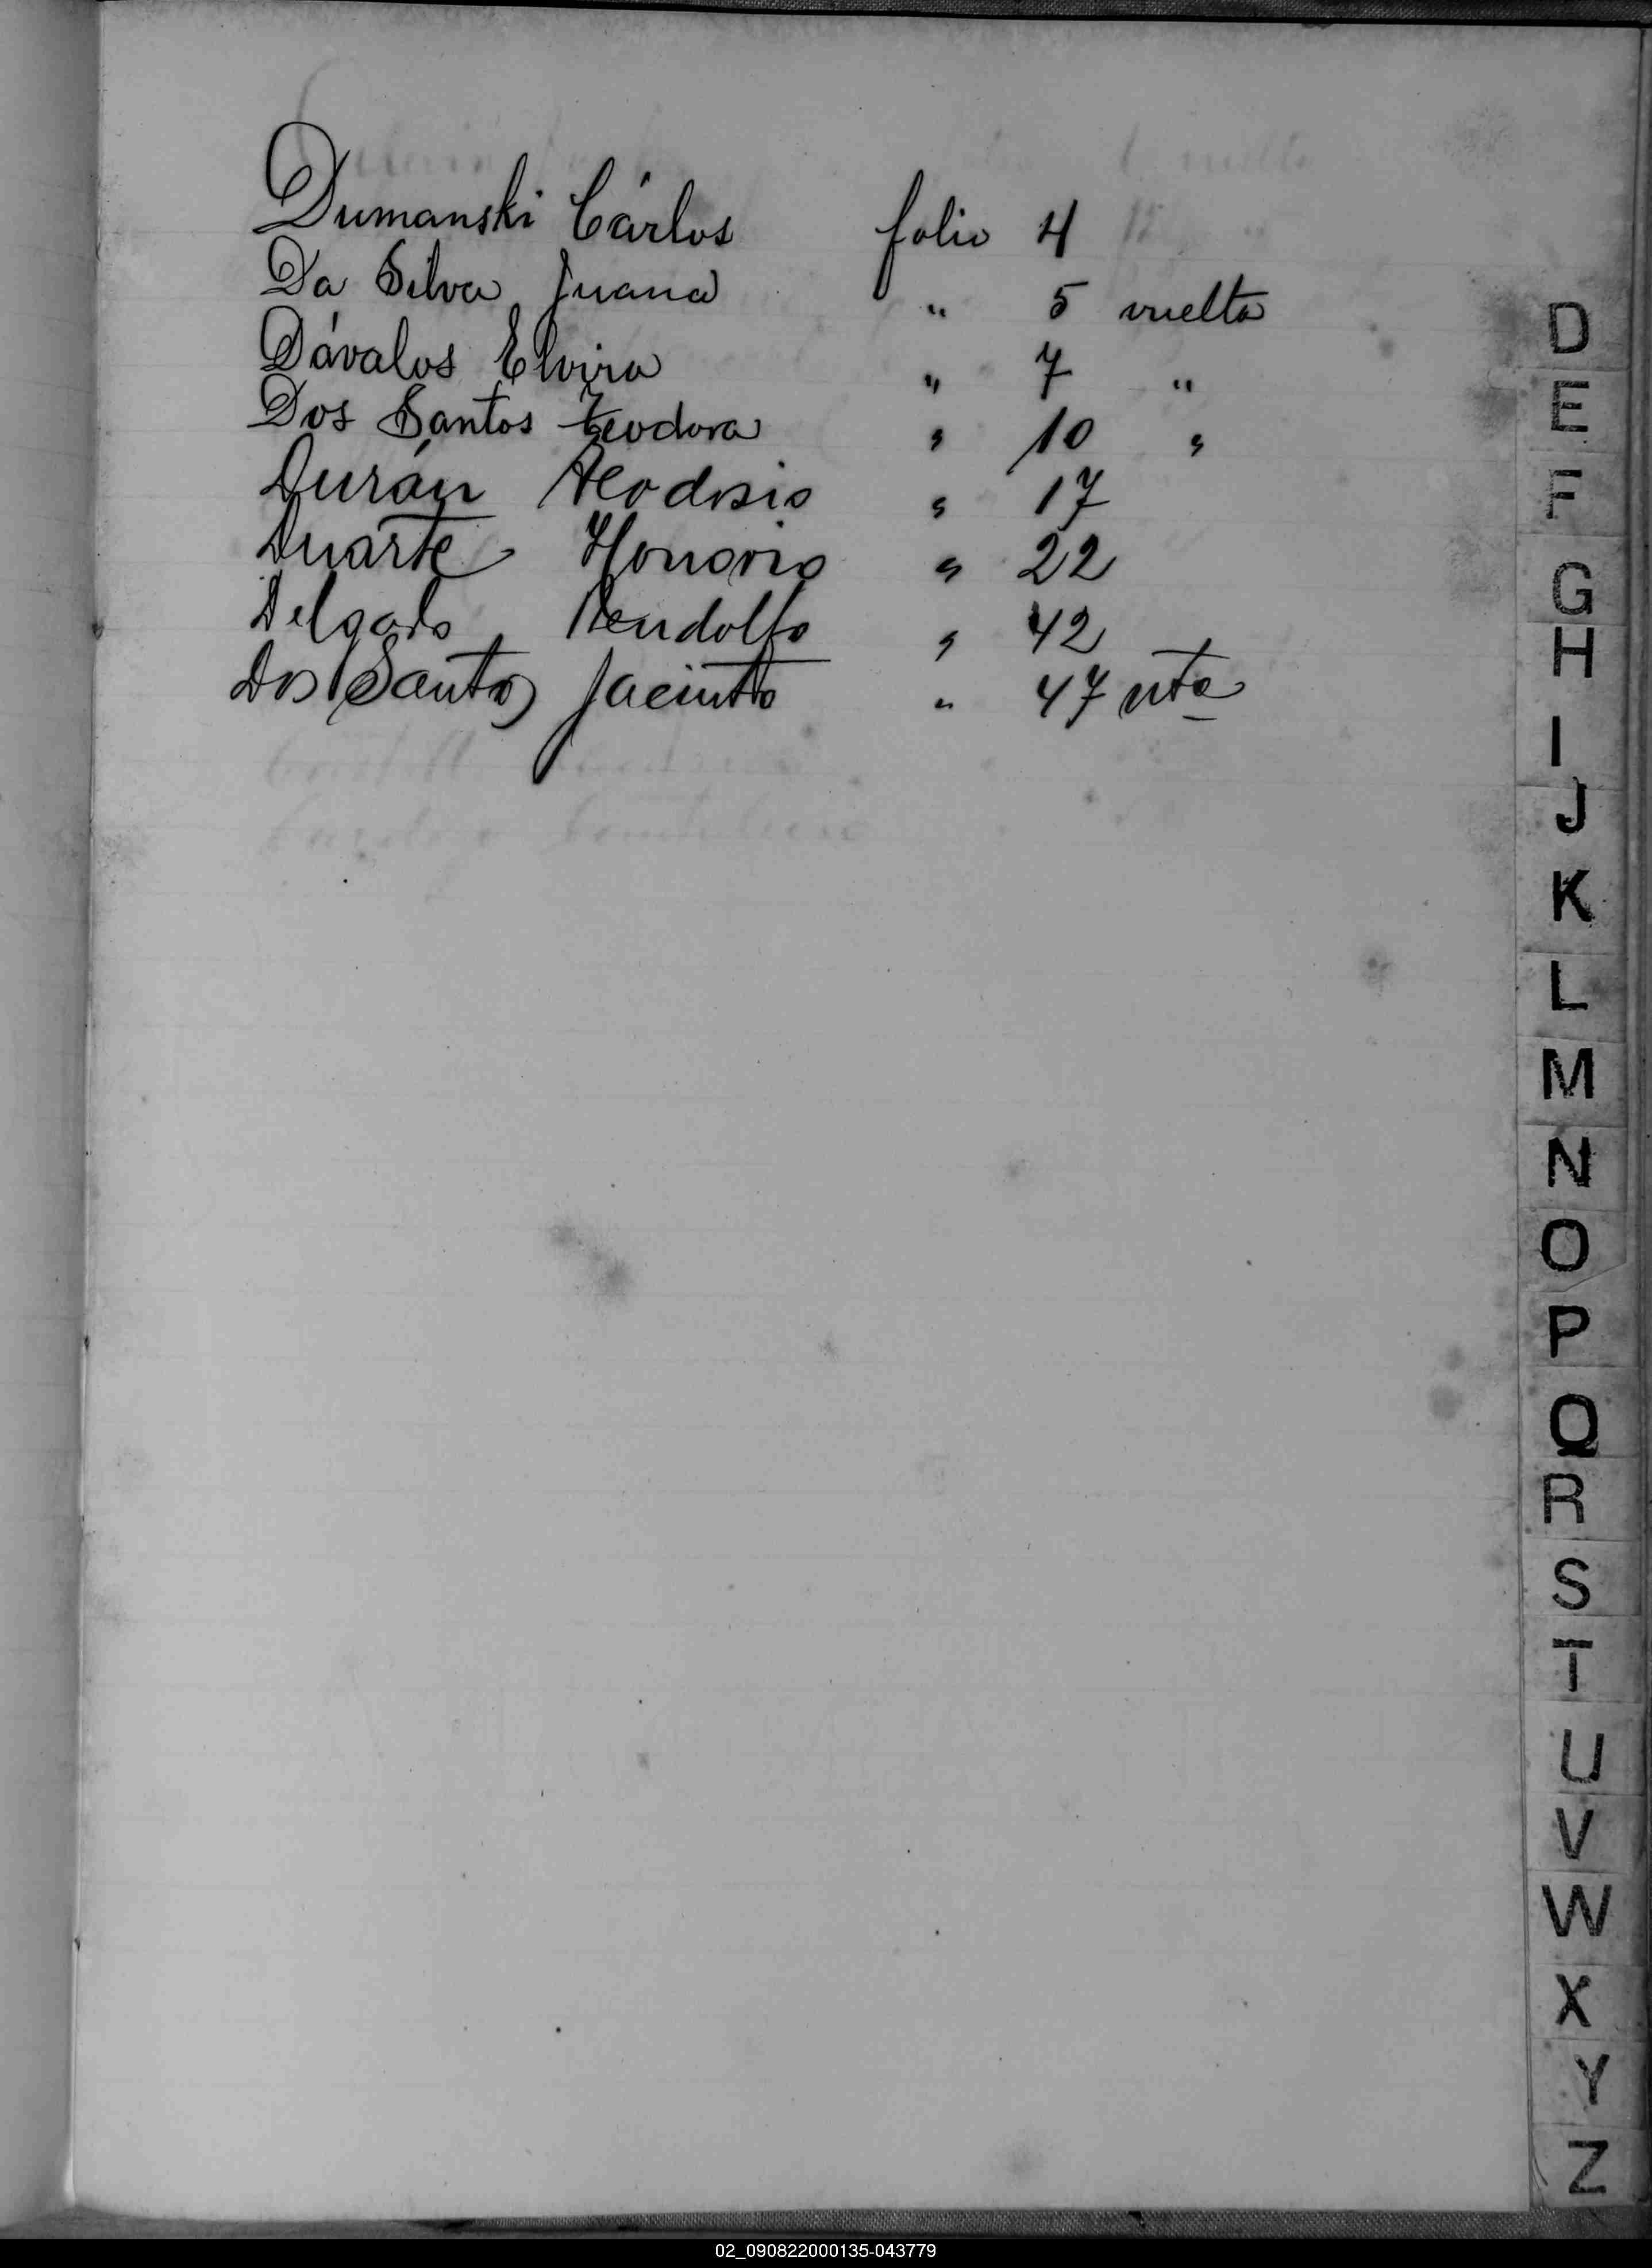 Dumanski Cárlos folio 4
Da Silva Juana " 5 vuelta
Dávalos Elvira " 7 "
Dos Santos Teodora " 10 "
Durán Teodosio " 17
Duarte Honorio " 22
Delgado " 42
Dos Santos Jacinto " 47 vta
D
E
F
G
H
I
J
K
L
M
N
O
P
Q
R
S
T
U
V
W
X
Y
Z
02_090822000135-043779